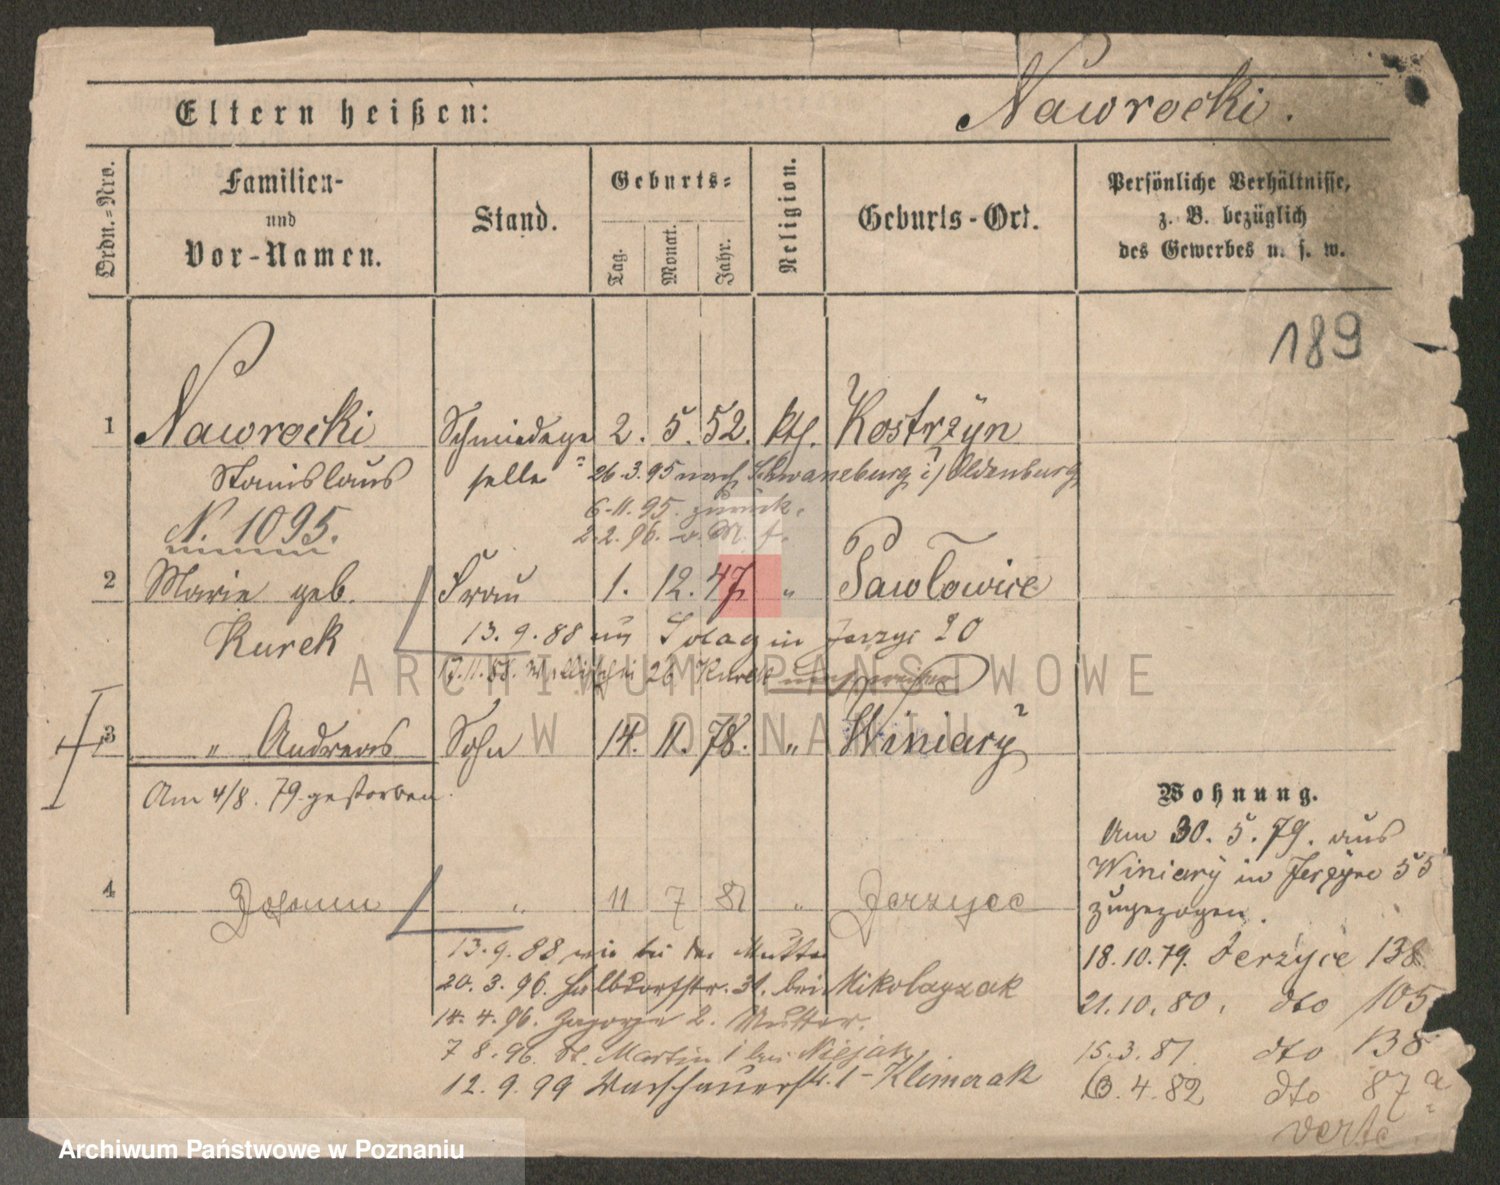 Eltern heißen:
Nawrocki.
Ordn.-Nro.
Familien-
und
Vor-Namen.
Stand.
Geburts-
Tag.
Monat.
Jahr.
Religion.
Geburts-Ort.
Persönliche Verhältnisse,
z. B. bezüglich
des Gewerbes u. s. w.
189
1 Nawrocki Schmiedege 2. 5. 52. kth. Kostrzyn
Stanislaus selle 26.3.95 nach Schwaneburg i/ Oldenburg
6-11.95. zurück.
N. 1095. 2.2.96.
2 Marie geb. Frau 1. 12. 47 " Pawlowice
Kurek 13. 9. 88 in 20
17.11.88. 26 Kurek
ARCHIWUM PAŃSTWOWE
W POZNANIU
3 " Andreas Sohn 14. 11. 78. " Winiary
Am 4/8. 79. gestorben.
Wohnung.
Am 30. 5. 79. aus
Winiary in Jerzyce 55
zugezogen.
4 Johann " 11 7 81 " Jerzyce
13. 9. 88 wie bei der Mutter
20. 3. 96. Halbdorfstr. 31. bei Mikolayzak
14. 4. 96. Zagorze 2. Mutter.
7 8. 96. St. Martin 1 bei
12. 9. 99 Warschauerstr. 1- Klimczak
18. 10. 79. Jerzyce 138
21. 10. 80. dto 105
15. 3. 81 dto 138
13. 4. 82 dto 87a
verte
Archiwum Państwowe w Poznaniu